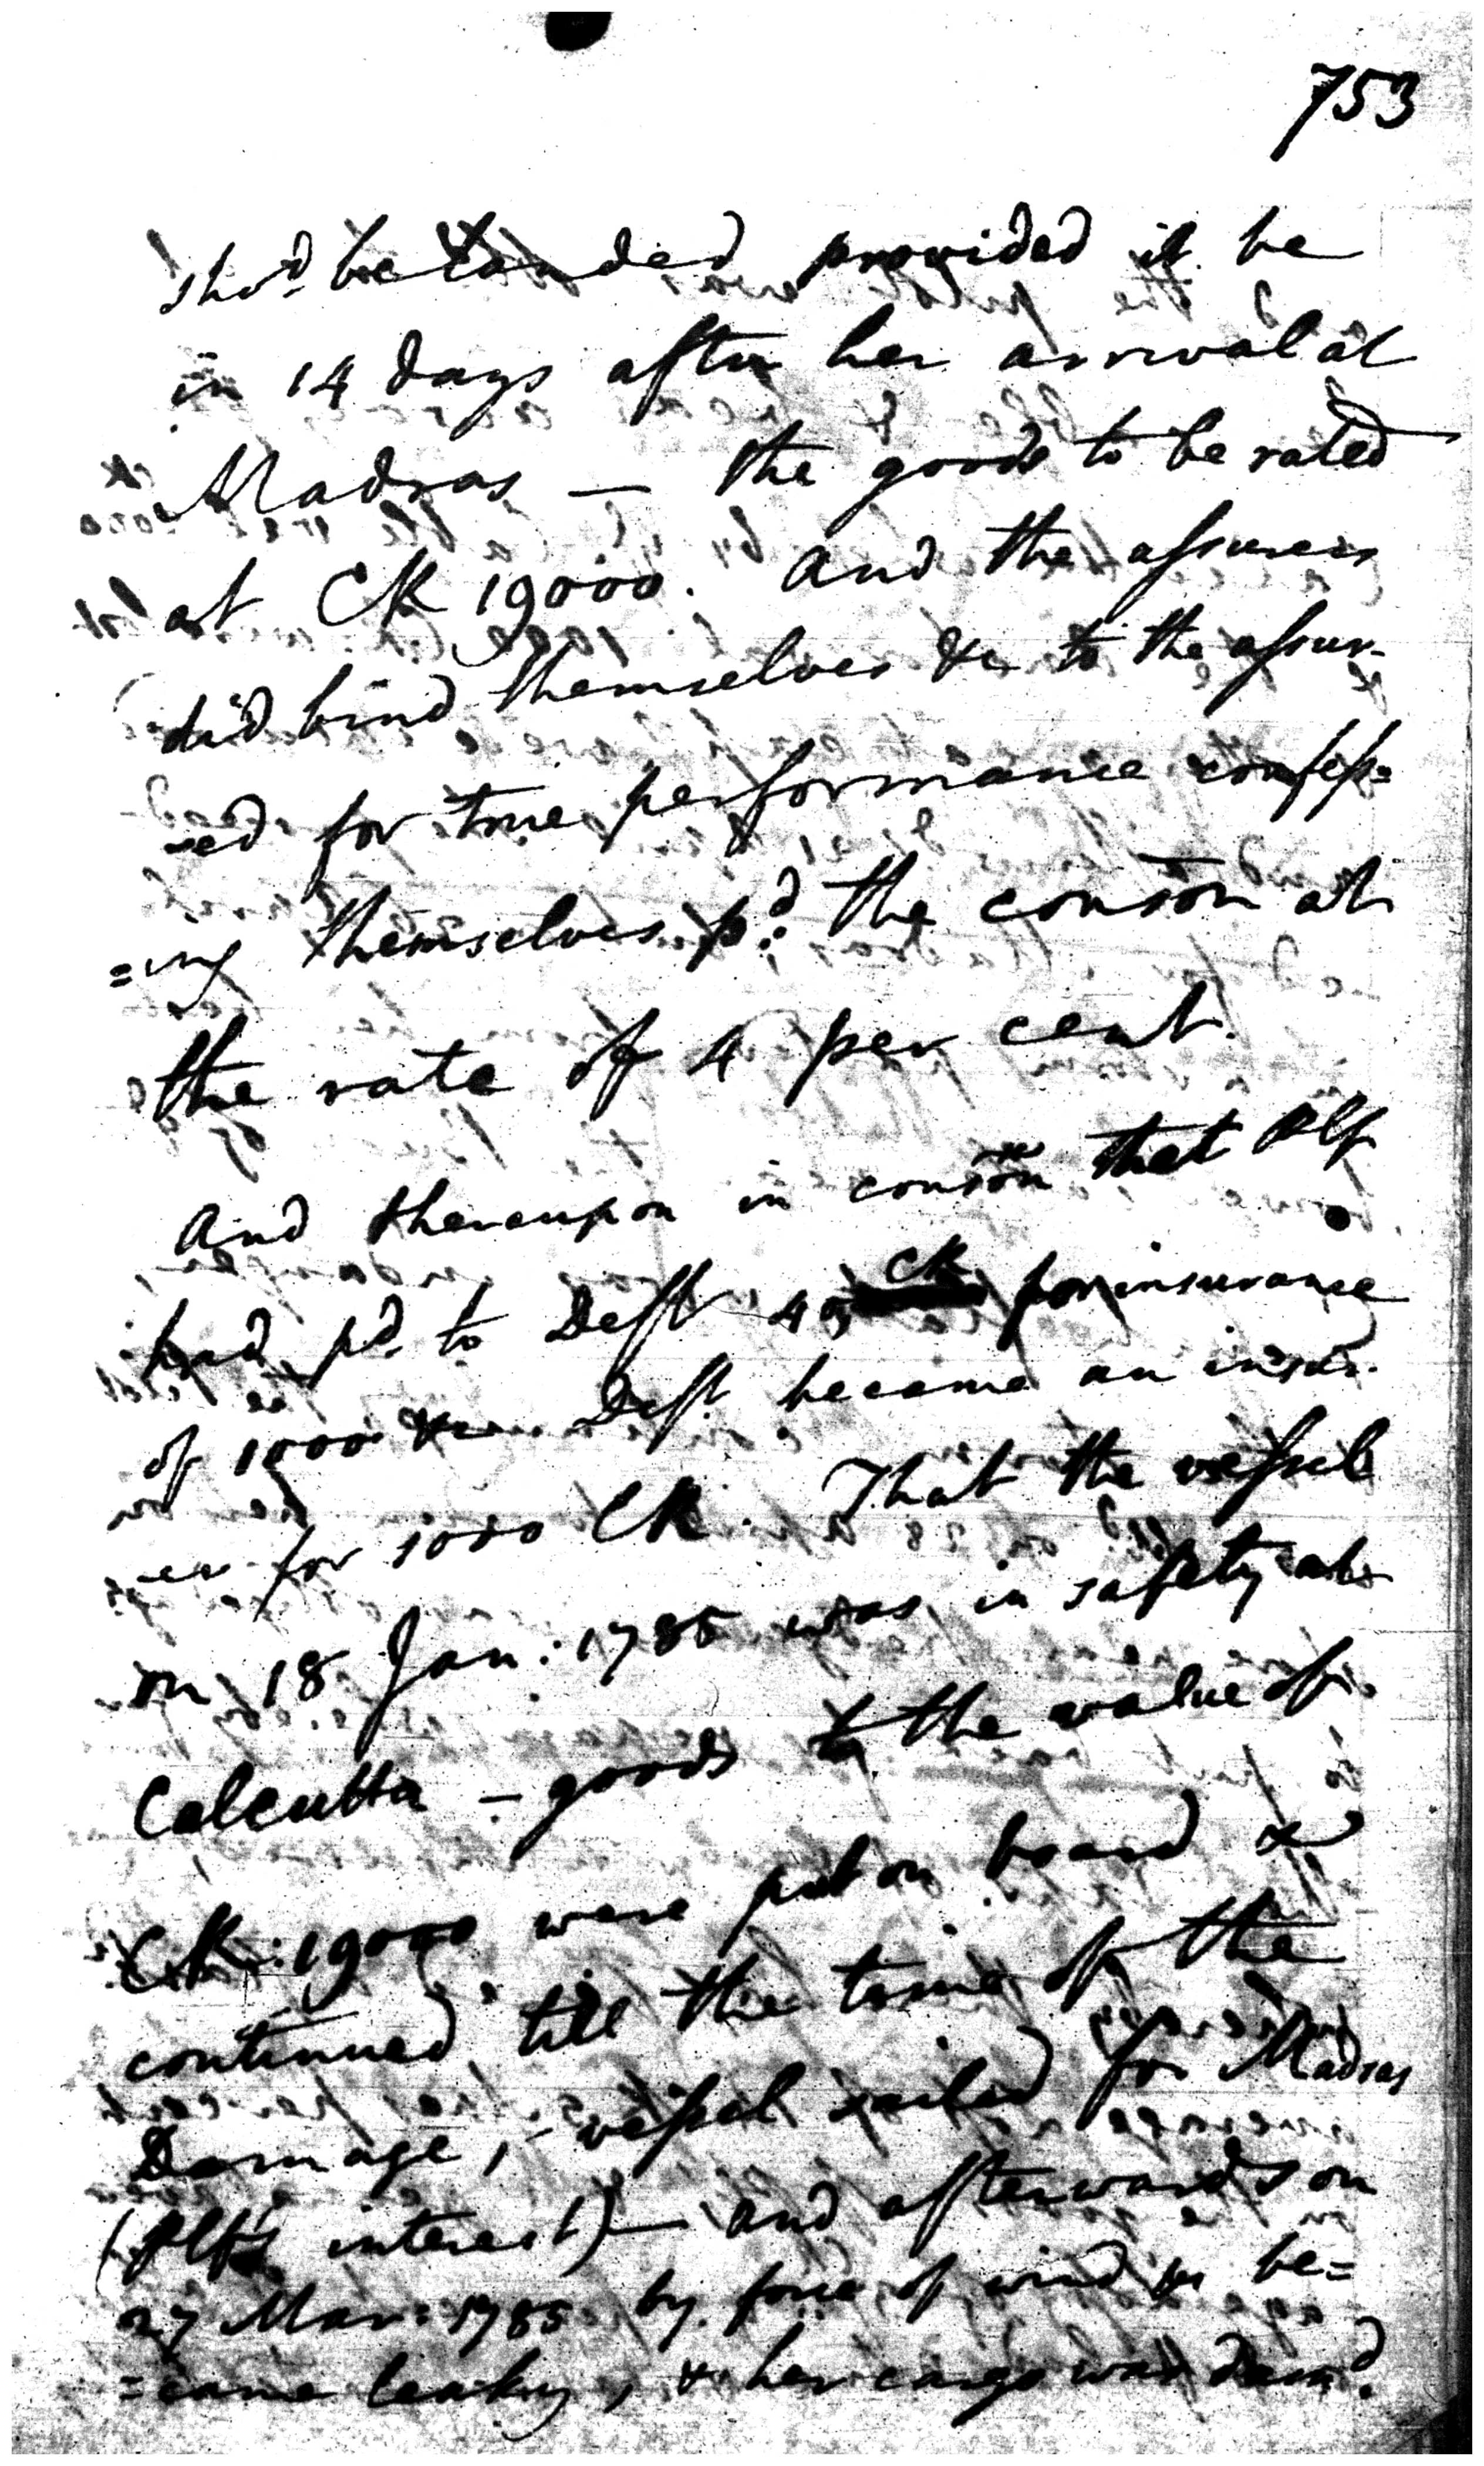 753
shod. be landed provided it be
in 14 days after her arrival at
Madras — the goods to be rated
at CR 19000. And the assurers
did bind themselves &c to the assur-
-ed for true performance confess=
=ing themselves pd. the conson at
the rate of 4 per cent.
And thereupon in conson that Plf
had pd. to Deft 40 CR for insurance
of 1000 &c Deft. became an insur-
-er for 1000 CR. That the vessel
on 18 Jan: 1785 was in safety at
Calcutta – goods to the value of
CR: 19000 were put on board &
continued till the time of the
Damage, – vessel sailed for Madras
(Plf's interest) — and afterwards on
27 Mar: 1785 by force of wind &c be=
=came leaky, & her cargo was damd.